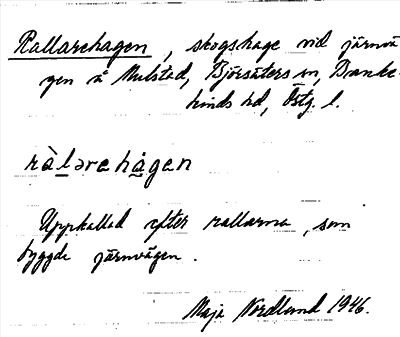 Rallarehagen, skogshage vid järnvä-
gen å Mulstad, Björsäters sn, Banke-
kinds hd, Östg. l.
ràlarehågen
Uppkallad efter rallarna, som
byggde järnvägen.
Maja Nordlund 1946.